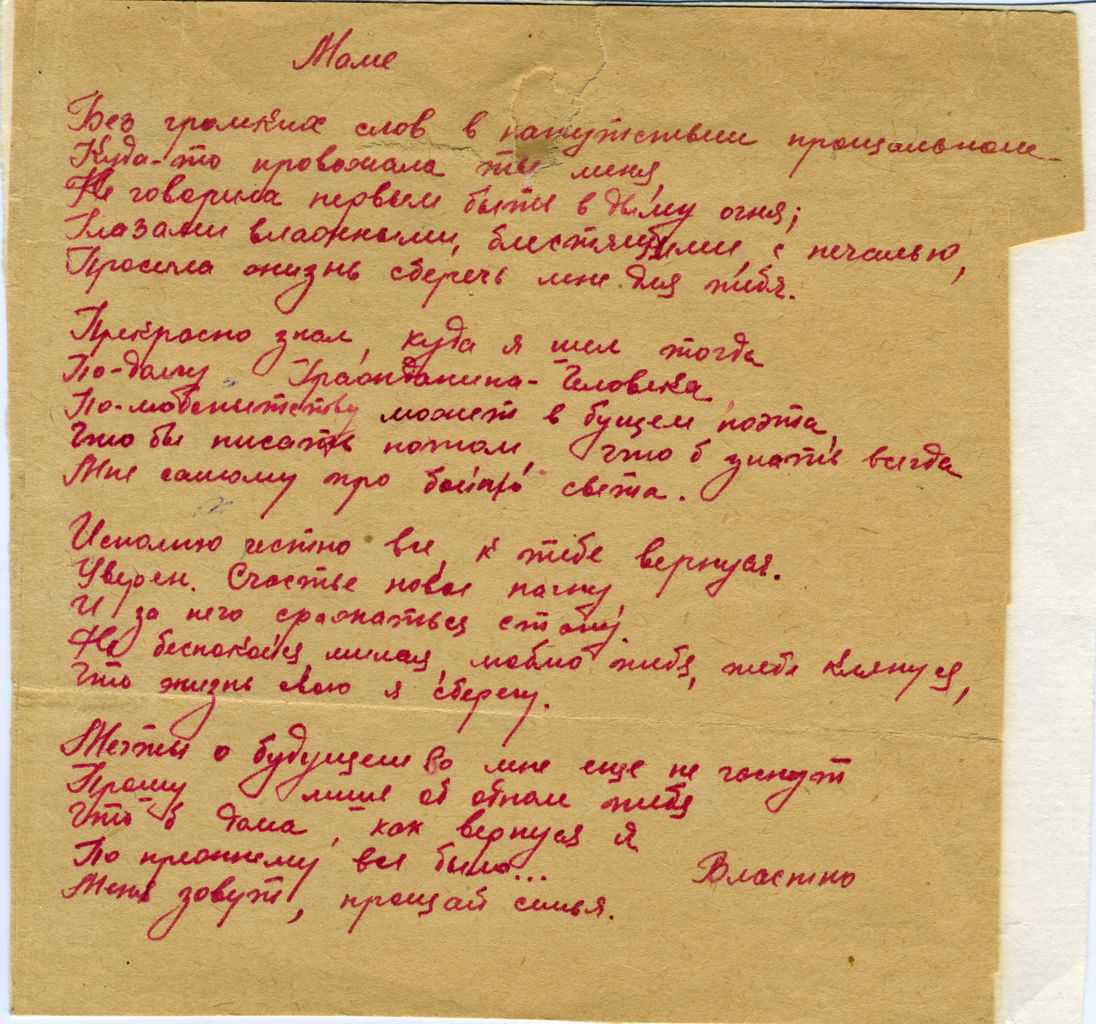 Маме
Без громких слов в напутствии прощальном
Куда-то провожала ты меня,
Не говорила первым быть в дыму огня;
Глазами влажными, блестящими, с печалью,
Просила жизнь сберечь мне для тебя.
Прекрасно знал, куда я шел тогда
По-долгу Гражданина-Человека
По-любопытству может в бущем поэта,
Что бы писать потом, что б знать всегда
Мне самому про света.
Исполню честно все, к тебе вернуся.
Уверен. Счастье новое начну
И за него сражаться стану.
Не беспокойся, милая, люблю тебя, тебе клянуся,
Что жизнь свою я сберегу.
Мечты о будущем во мне еще не гаснут
Прошу лишь об одном тебя
Что-б дома, как вернуся я
По прежнему все было...
Властно
Меня зовут, прощай семья.